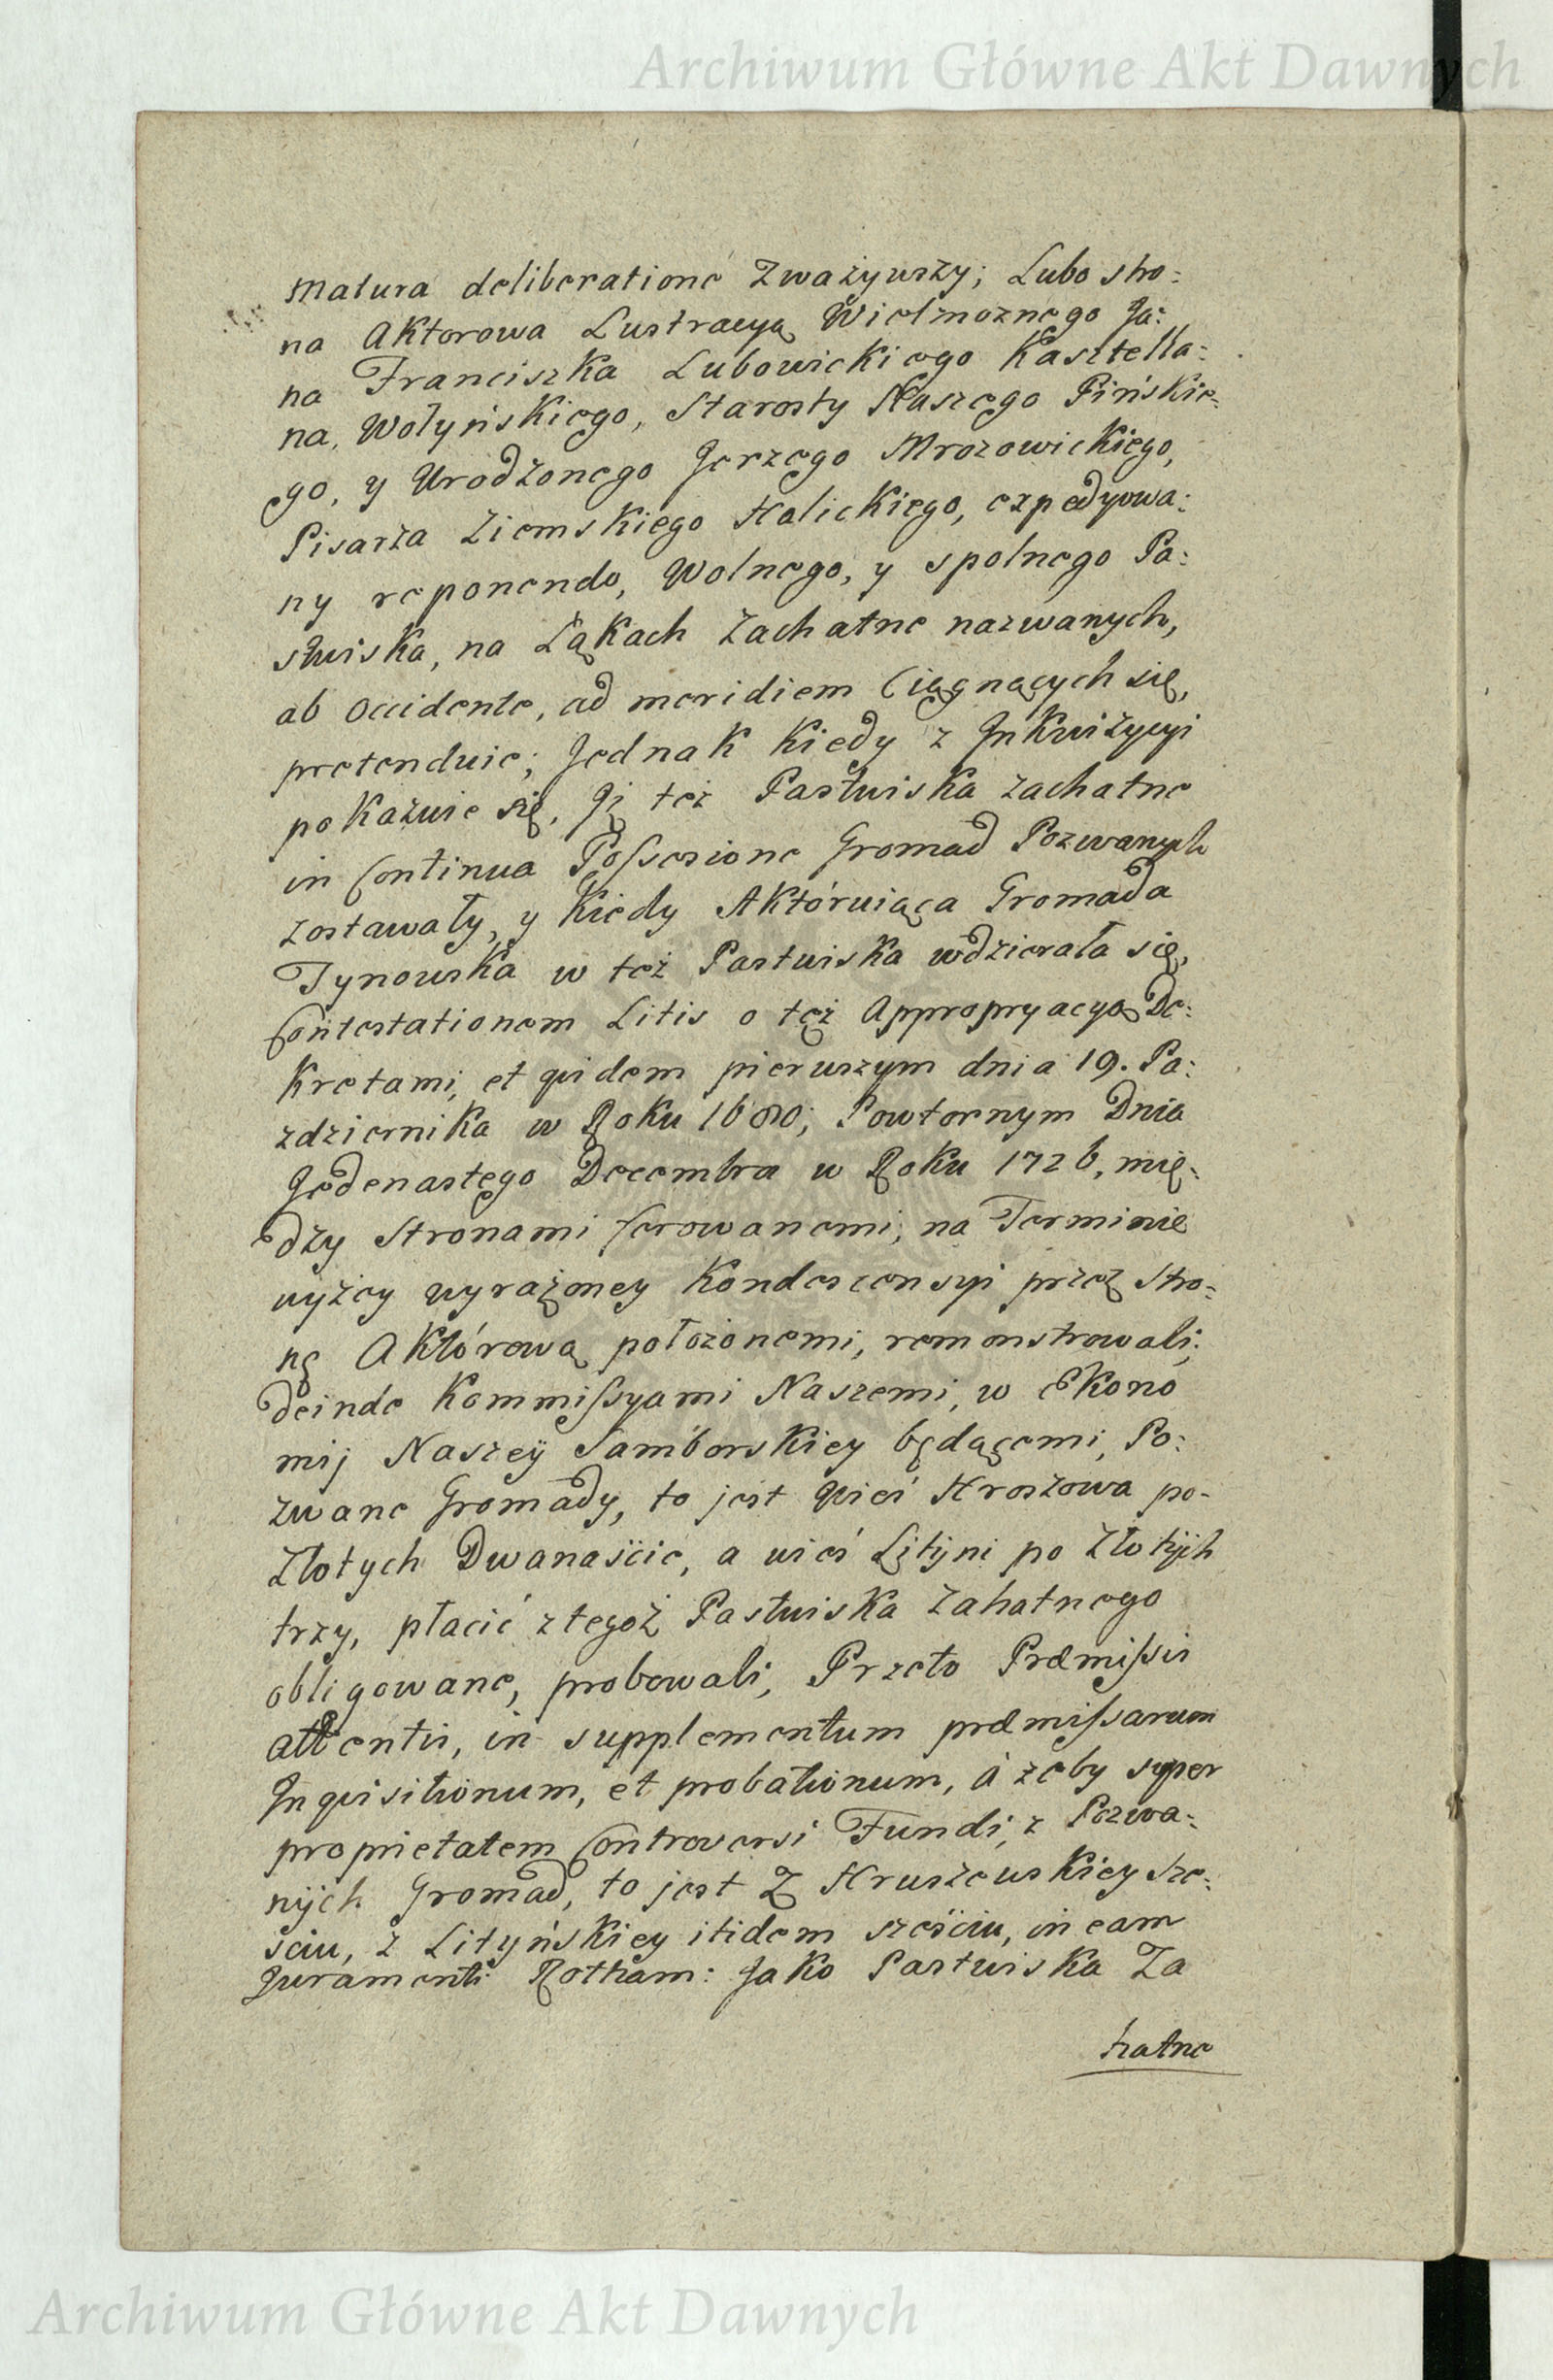 Archiwum Główne Akt Dawnych
matura deliberatione Zważywszy; Lubo stro=
na Aktorowa Lustracyą Wielmoznego Ja=
na Franciszka Lubowickiego Kasztella=
na, Wołyńskiego, Starosty Naszego Pińskie=
go, y Urodzonego Jerzego Mrozowickiego,
Pisarza Ziemskiego Halickiego, expedyowa=
ny reponendo, Wolnego, y spolnego Pa=
stwiska, na Łąkach Zachatne nazwanych,
ab occidente, ad meridiem Ciągnących się,
pretenduie; Jednak kiedy z Inkwizycyi
pokazuie się, Jż też Pastwiska zachatne
in Continua Possesione Gromad Pozwanych
zostawały, y kiedy Aktóruiąca Gromada
Tynowska w też Pastwiska wdzierała się,
Contestationem Litis o tęż Appropryacyą De=
kretami, et quidem pierwszym dnia 19. Pa=
zdziernika w Roku 1680; Powtornym Dnia
Jedenastego Decembra w Roku 1726, mię=
dzy Stronami ferowanemi; na Terminie
wyżey wyrażoney Kondescensyi przez Stro=
nę Aktórową położonemi, remonstrowali;
deinde Kommissyami Naszemi, w Ekono
mij Naszey Samborskiey będącemi, Po=
zwane Gromady, to jest Wieś Hroszowa po=
Złotych Dwanaście, a wieś Lityni po Złotych
trzy, płacić z tegoż Pastwiska Zahatnego
obligowane, probowali; Przeto Præmissis
attentis, in supplementum præmissarum
Inquisitionum, et probationum, ażeby super
proprietatem Controversi Fundi, z Pozwa=
nych Gromad, to jest Z Hruszowskiey sze=
ściu, z Lityńskiey itidem sześciu, in eam
Juramenti Rotham: Jako Pastwiska Za
hatne
Archiwum Główne Akt Dawnych